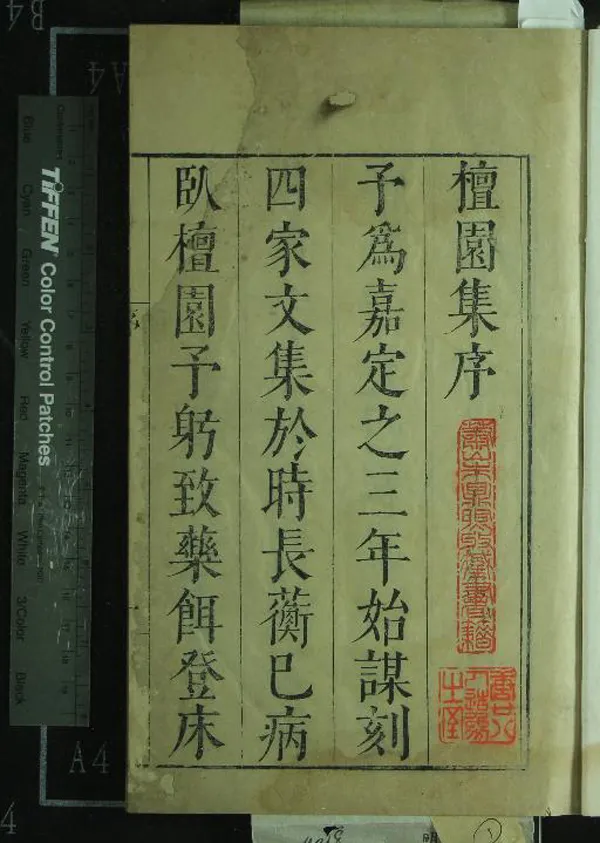 檀園集序
予爲嘉定之三年始謀刻
四家文集於時長蘅已病
臥檀園予躬致藥餌登床
TIFFEN Color Control Patches
Blue
Cyan
Green
Yellow
Red
Magenta
White
3/Color
Black
Centimetres
B4
A4
A4
4
明
1